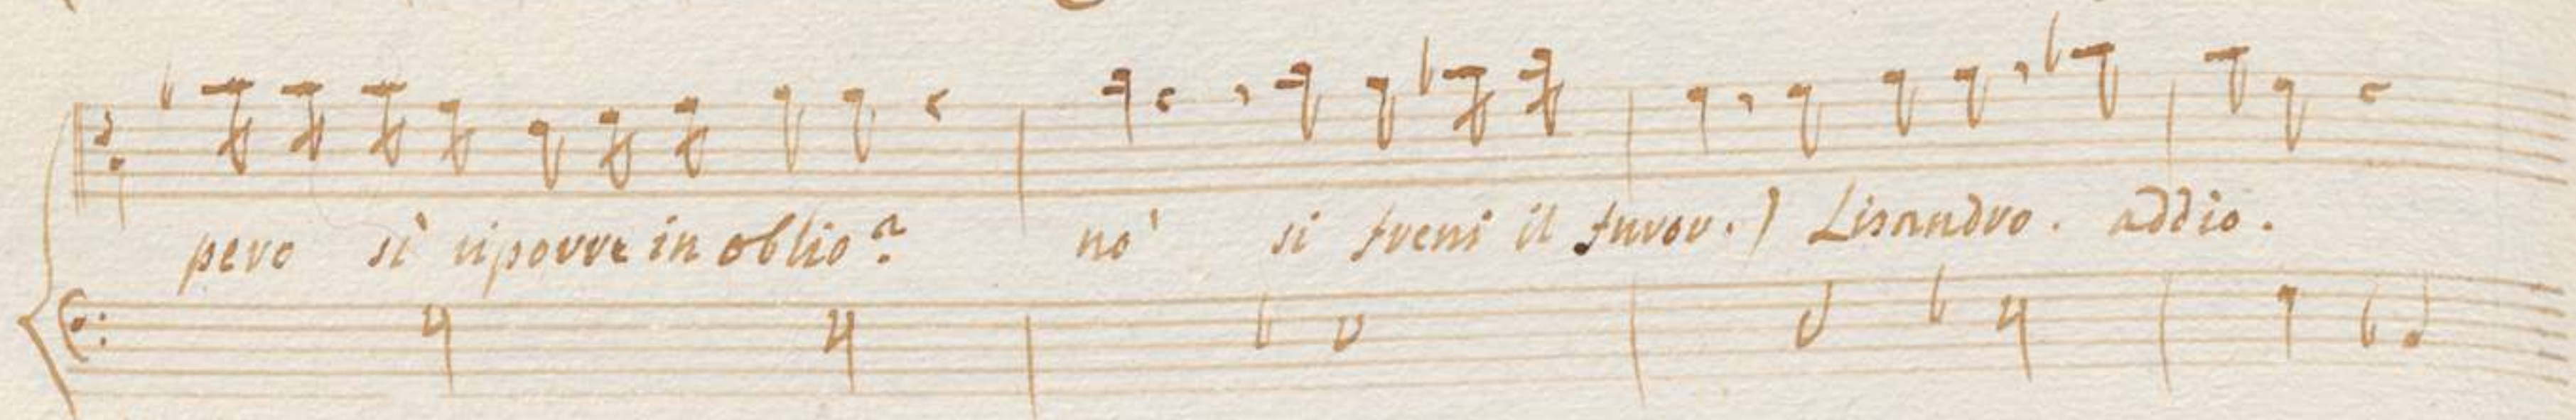 pero sì riporre in oblio? nò si freni il furor.) Lisandro. addio.